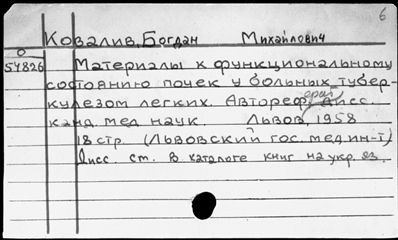 6
Ковалив, Богдан Михайлович
0
57826
Материалы к функциональному
состоянию почек у больных тубер-
кулезом легких. Автореф. дисс.
канд. мед наук. Львов, 1958
18 стр. (Львовский гос. мед ин-т)
Дисс. ст. в каталоге книг на укр. яз.